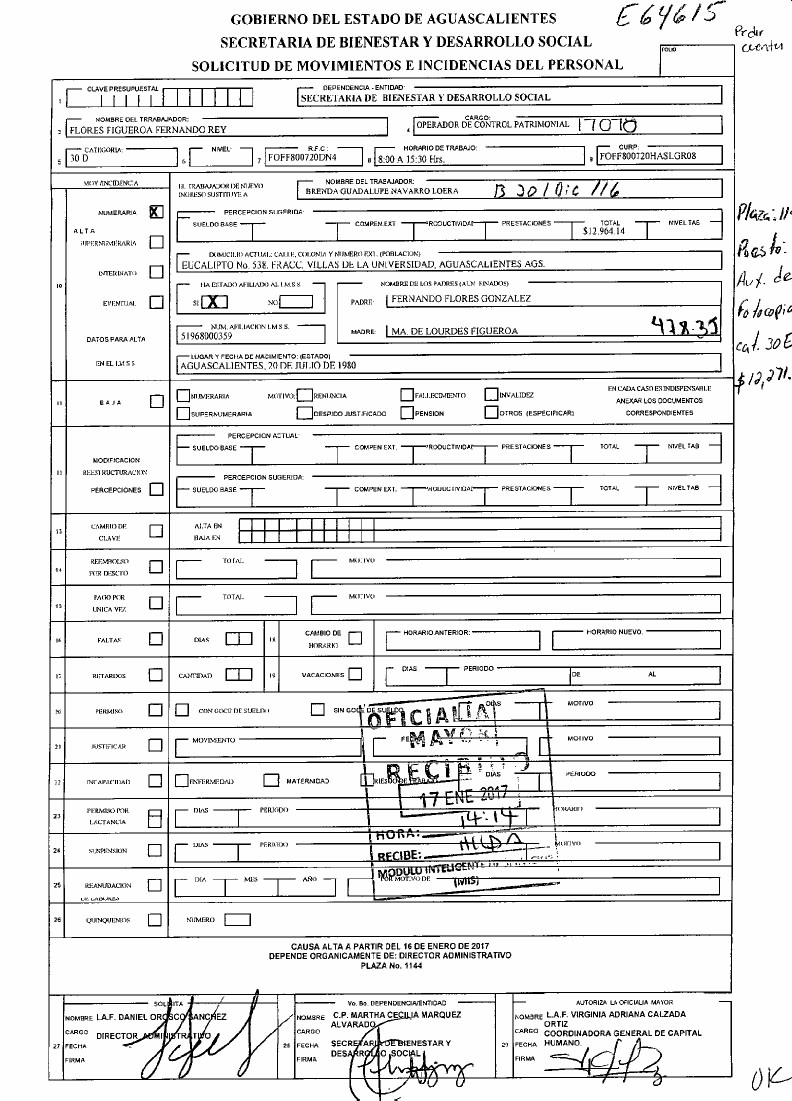 E64615
Pedir
cuenta
GOBIERNO DEL ESTADO DE AGUASCALIENTES
SECRETARIA DE BIENESTAR Y DESARROLLO SOCIAL
SOLICITUD DE MOVIMIENTOS E INCIDENCIAS DEL PERSONAL
FOLIO
1 CLAVE PRESUPUESTAL
DEPENDENCIA - ENTIDAD:
SECRETARIA DE BIENESTAR Y DESARROLLO SOCIAL
NOMBRE DEL TRRABAJADOR: CARGO:
FLORES FIGUEROA FERNANDO REY 4 OPERADOR DE CONTROL PATRIMONIAL 17070
CATEGORIA: NIVEL: R.F.C.: HORARIO DE TRABAJO: CURP:
5 30 D 6 7 FOFF800720DN4 8 8:00 A 15:30 Hrs. 9 FOFF800720HASLGR08
MOV/INCIDENCIA
EL TRABAJADOR DE NUEVO
INGRESO SUSTITUYE A
NOMBRE DEL TRABAJADOR:
BRENDA GUADALUPE NAVARRO LOERA B 30/Dic/16
10
NUMERARIA X
PERCEPCION SUGERIDA:
SUELDO BASE COMPEN.EXT. PRODUCTIVIDAD PRESTACIONES TOTAL NIVEL TAB
$12,964.14
ALTA
SUPERNUMERARIA
DOMICILIO ACTUAL: CALLE, COLONIA Y NUMERO EXT. (POBLACION)
EUCALIPTO No. 538. FRACC. VILLAS DE LA UNIVERSIDAD, AGUASCALIENTES AGS.
INTERINATO
HA ESTADO AFILIADO AL I.M.S.S. NOMBRE DE LOS PADRES (AUN FINADOS)
EVENTUAL SI X NO PADRE: FERNANDO FLORES GONZALEZ
DATOS PARA ALTA
NUM. AFILIACION I.M.S.S.
51968000359 MADRE: MA. DE LOURDES FIGUEROA 478.35
EN EL I.M.S.S.
LUGAR Y FECHA DE NACIMIENTO: (ESTADO)
AGUASCALIENTES, 20 DE JULIO DE 1980
Plaza: 114
Puesto:
Aux. de
Fotocopia
cat. 30E
$12,271.
11 BAJA NUMERARIA MOTIVO: RENUNCIA FALLECIMIENTO INVALIDEZ EN CADA CASO ES INDISPENSABLE
ANEXAR LOS DOCUMENTOS
SUPERNUMERARIA DESPIDO JUSTIFICADO PENSION OTROS (ESPECIFICAR) CORRESPONDIENTES
MODIFICACION
REESTRUCTURACION
PERCEPCIONES
PERCEPCION ACTUAL:
SUELDO BASE COMPEN EXT. PRODUCTIVIDAD PRESTACIONES TOTAL NIVEL TAB
PERCEPCION SUGERIDA:
SUELDO BASE COMPEN EXT. PRODUCTIVIDAD PRESTACIONES TOTAL NIVEL TAB
13 CAMBIO DE
CLAVE
ALTA EN
BAJA EN
14 REEMBOLSO
POR DESCTO
TOTAL MOTIVO
15 PAGO POR
UNICA VEZ
TOTAL MOTIVO
16 FALTAS DIAS 18 CAMBIO DE
HORARIO
HORARIO ANTERIOR: HORARIO NUEVO.
17 RETARDOS CANTIDAD 19 VACACIONES DIAS PERIODO DE AL
20 PERMISO CON GOCE DE SUELDO SIN GOCE DE SUELDO DIAS MOTIVO
21 JUSTIFICAR MOVIMIENTO MOTIVO
22 INCAPACIDAD ENFERMEDAD MATERNIDAD RIESGO DE TRABAJO DIAS PERIODO
23 PERMISO POR
LACTANCIA
DIAS PERIODO HORARIO
24 SUSPENSION DIAS PERIODO MOTIVO
25 REANUDACION
DE LABORES
DIA MES AÑO POR MOTIVO DE
26 QUINQUENIOS NUMERO
OFICIALIA
MAYOR
RECIBIDO
17 ENE 2017
HORA: 14:14
RECIBE: HILDA
MODULO INTELIGENTE DE
(MIIS)
CAUSA ALTA A PARTIR DEL 16 DE ENERO DE 2017
DEPENDE ORGANICAMENTE DE: DIRECTOR ADMINISTRATIVO
PLAZA No. 1144
27
SOLICITA
NOMBRE L.A.F. DANIEL OROSCO SANCHEZ
CARGO DIRECTOR ADMINISTRATIVO
FECHA
FIRMA
28
Vo. Bo. DEPENDENCIA/ENTIDAD
NOMBRE C.P. MARTHA CECILIA MARQUEZ
ALVARADO
CARGO
FECHA SECRETARIA DE BIENESTAR Y
DESARROLLO SOCIAL
FIRMA
AUTORIZA LA OFICIALIA MAYOR
NOMBRE L.A.F. VIRGINIA ADRIANA CALZADA
ORTIZ
CARGO COORDINADORA GENERAL DE CAPITAL
FECHA HUMANO.
FIRMA
OK